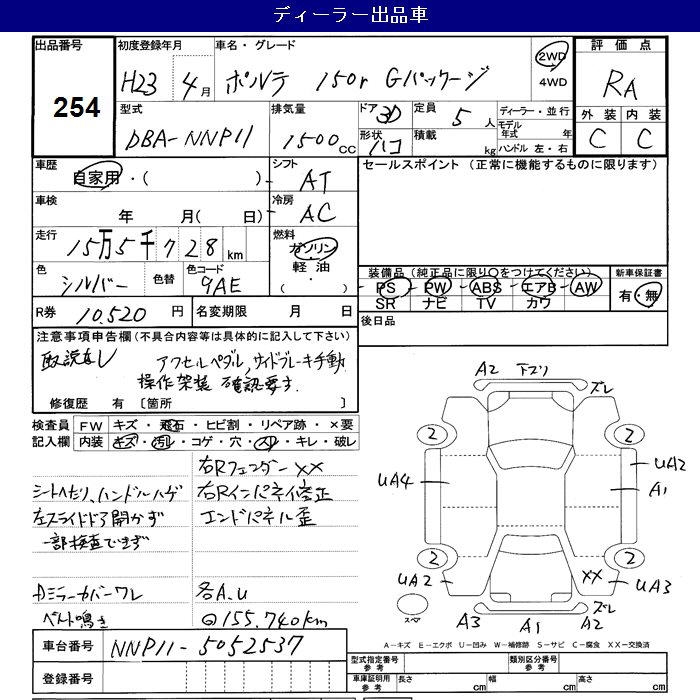 ディーラー出品車
出品番号
254
初度登録年月
H23 4月
車名・グレード
ポルテ 150r Gパッケージ
2WD
4WD
評価点
RA
外装 内装
C C
型式
DBA-NNP11
排気量
1500cc
ドア 3D
形状 ハコ
定員 5人
積載 kg
ディーラー・並行
モデル年式 年
ハンドル 左・右
車歴
自家用・( )
シフト
AT
セールスポイント (正常に機能するものに限ります)
車検
年 月( 日)
冷房
AC
走行
15万5千728km
燃料
ガソリン
軽油
( )
色
シルバー
色替
色コード
9AE
装備品(純正品に限り○をつけてください)
PS PW ABS エアB AW
SR ナビ TV カワ
新車保証書
有・無
R券 10,520円
名変期限 月 日
後日品
注意事項申告欄(不具合内容等は具体的に記入して下さい)
取説なし アクセルペダル,サイドブレーキ手動
操作架装 確認要す.
修復歴 有 〔箇所 〕
検査員記入欄
FW キズ・飛石・ヒビ割・リペア跡・×要
内装 キズ・汚レ・コゲ・穴・スレ・キレ・破レ
右Rフェンダー××
シートへたり、ハンドルハゲ 右Rインパネ修正
左スライドドア開かず エンドパネル歪
一部検査できず
Dミラーカバーワレ 各A.U
ベルト鳴き ◎155.740km
A2 下ブリ
ズレ
2 2
UA4 UA2
A1
2 2
UA2 ×× UA3
スペア A3 A1 A2 ズレ
A-キズ E-エクボ U-凹み W-補修跡 S-サビ C-腐食 XX-交換済
車台番号 NNP11-5052537
登録番号
型式指定番号 参考
類別区分番号 参考
車庫証明用 参考
長さ cm 幅 cm 高さ cm